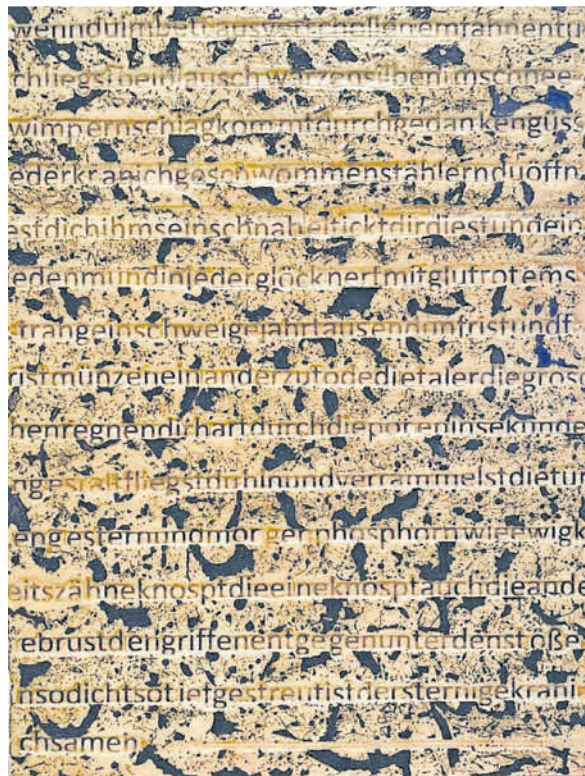 wennduimbettausverschollenemfahnentu
chliegstbeiblauschwarzensilbenimschnee
wimpernschlagkommtdurchgedankengüss
ederkranichgeschwommenstählernduöffn
estdichihmseinschnabelticktdirdiestundein
edenmundinjederglöcknertmitglutrotems
trangeinschweigejahrtausendunfristundf
ristmünzeneinanderzutodedietalerdiegros
henregnendirhartdurchdieporeninsekunde
ngestaltfliegstduhinundverrammelstdietür
engesternundmorgenphosphornwieewigk
eitszähneknosptdieeineknosptauchdieande
ebrustdengriffenentgegenunterdenstöße
nsodichtsotiefgestreutistdersternigekrani
chsamen